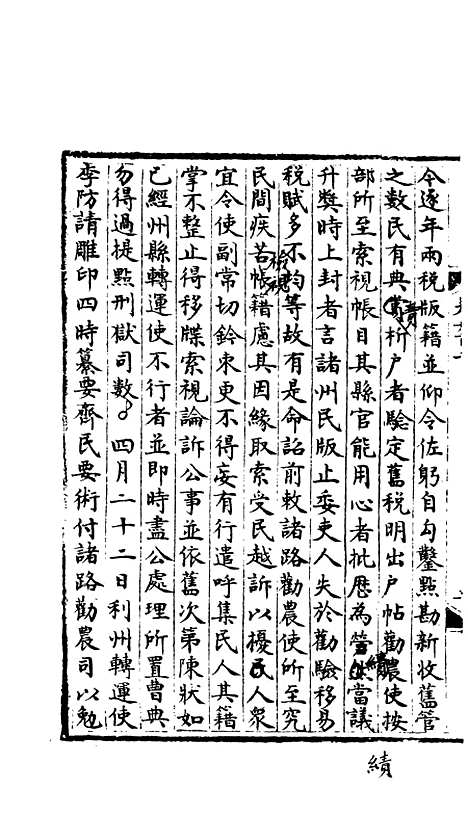 今逐年兩稅版籍並仰令佐躬自勾鑿點勘新收舊管
之數民有典賣析戶者驗定舊稅明出戶帖勸農使按
部所至索視帳目其縣官能用心者批歷為勞績當議
升獎時上封者言諸州民版止委吏人失於勸驗移易
稅賦多不均等故有是命詔前敕諸路勸農使所至究
民間疾苦檢視帳籍慮其因緣取索受民越訴以擾民人眾
宜令使副常切鈐束更不得妄有行遣呼集民人其籍
掌不整止得移牒索視論訴公事並依舊次第陳狀如
已經州縣轉運使不行者並即時盡公處理所置曹典
勿得過提點刑獄司數 四月二十二日利州轉運使
李防請雕印四時纂要齊民要術付諸路勸農司以勉
績